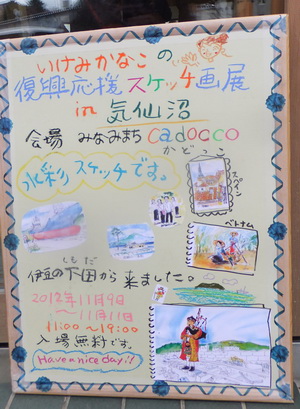 いけみかなこの
復興応援スケッチ画展
in 気仙沼
会場 みなみまち cadocco
かどっこ
水彩スケッチです。
スペイン
ベトナム
しもだ
伊豆の下田から来ました。
2018年11月9日
〜11月11日
11:00〜19:00
入場無料です。
Have a nice day!!